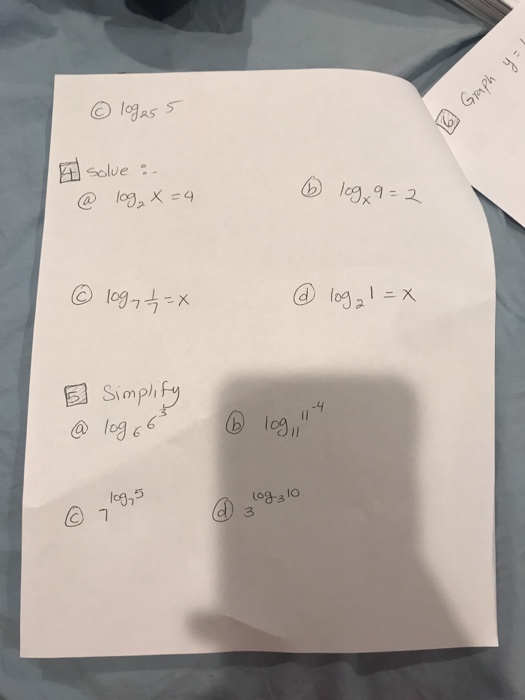 ⓒ log₂₅ 5
4 Solve :-
ⓐ log₂ x = 4
ⓑ logₓ 9 = 2
ⓒ log₇ 1/7 = x
ⓓ log₂ 1 = x
5 Simplify
ⓐ log₆ 6³
ⓑ log₁₁ 11⁻⁴
ⓒ 7^(log₇ 5)
ⓓ 3^(log₃ 10)
6 Graph y =